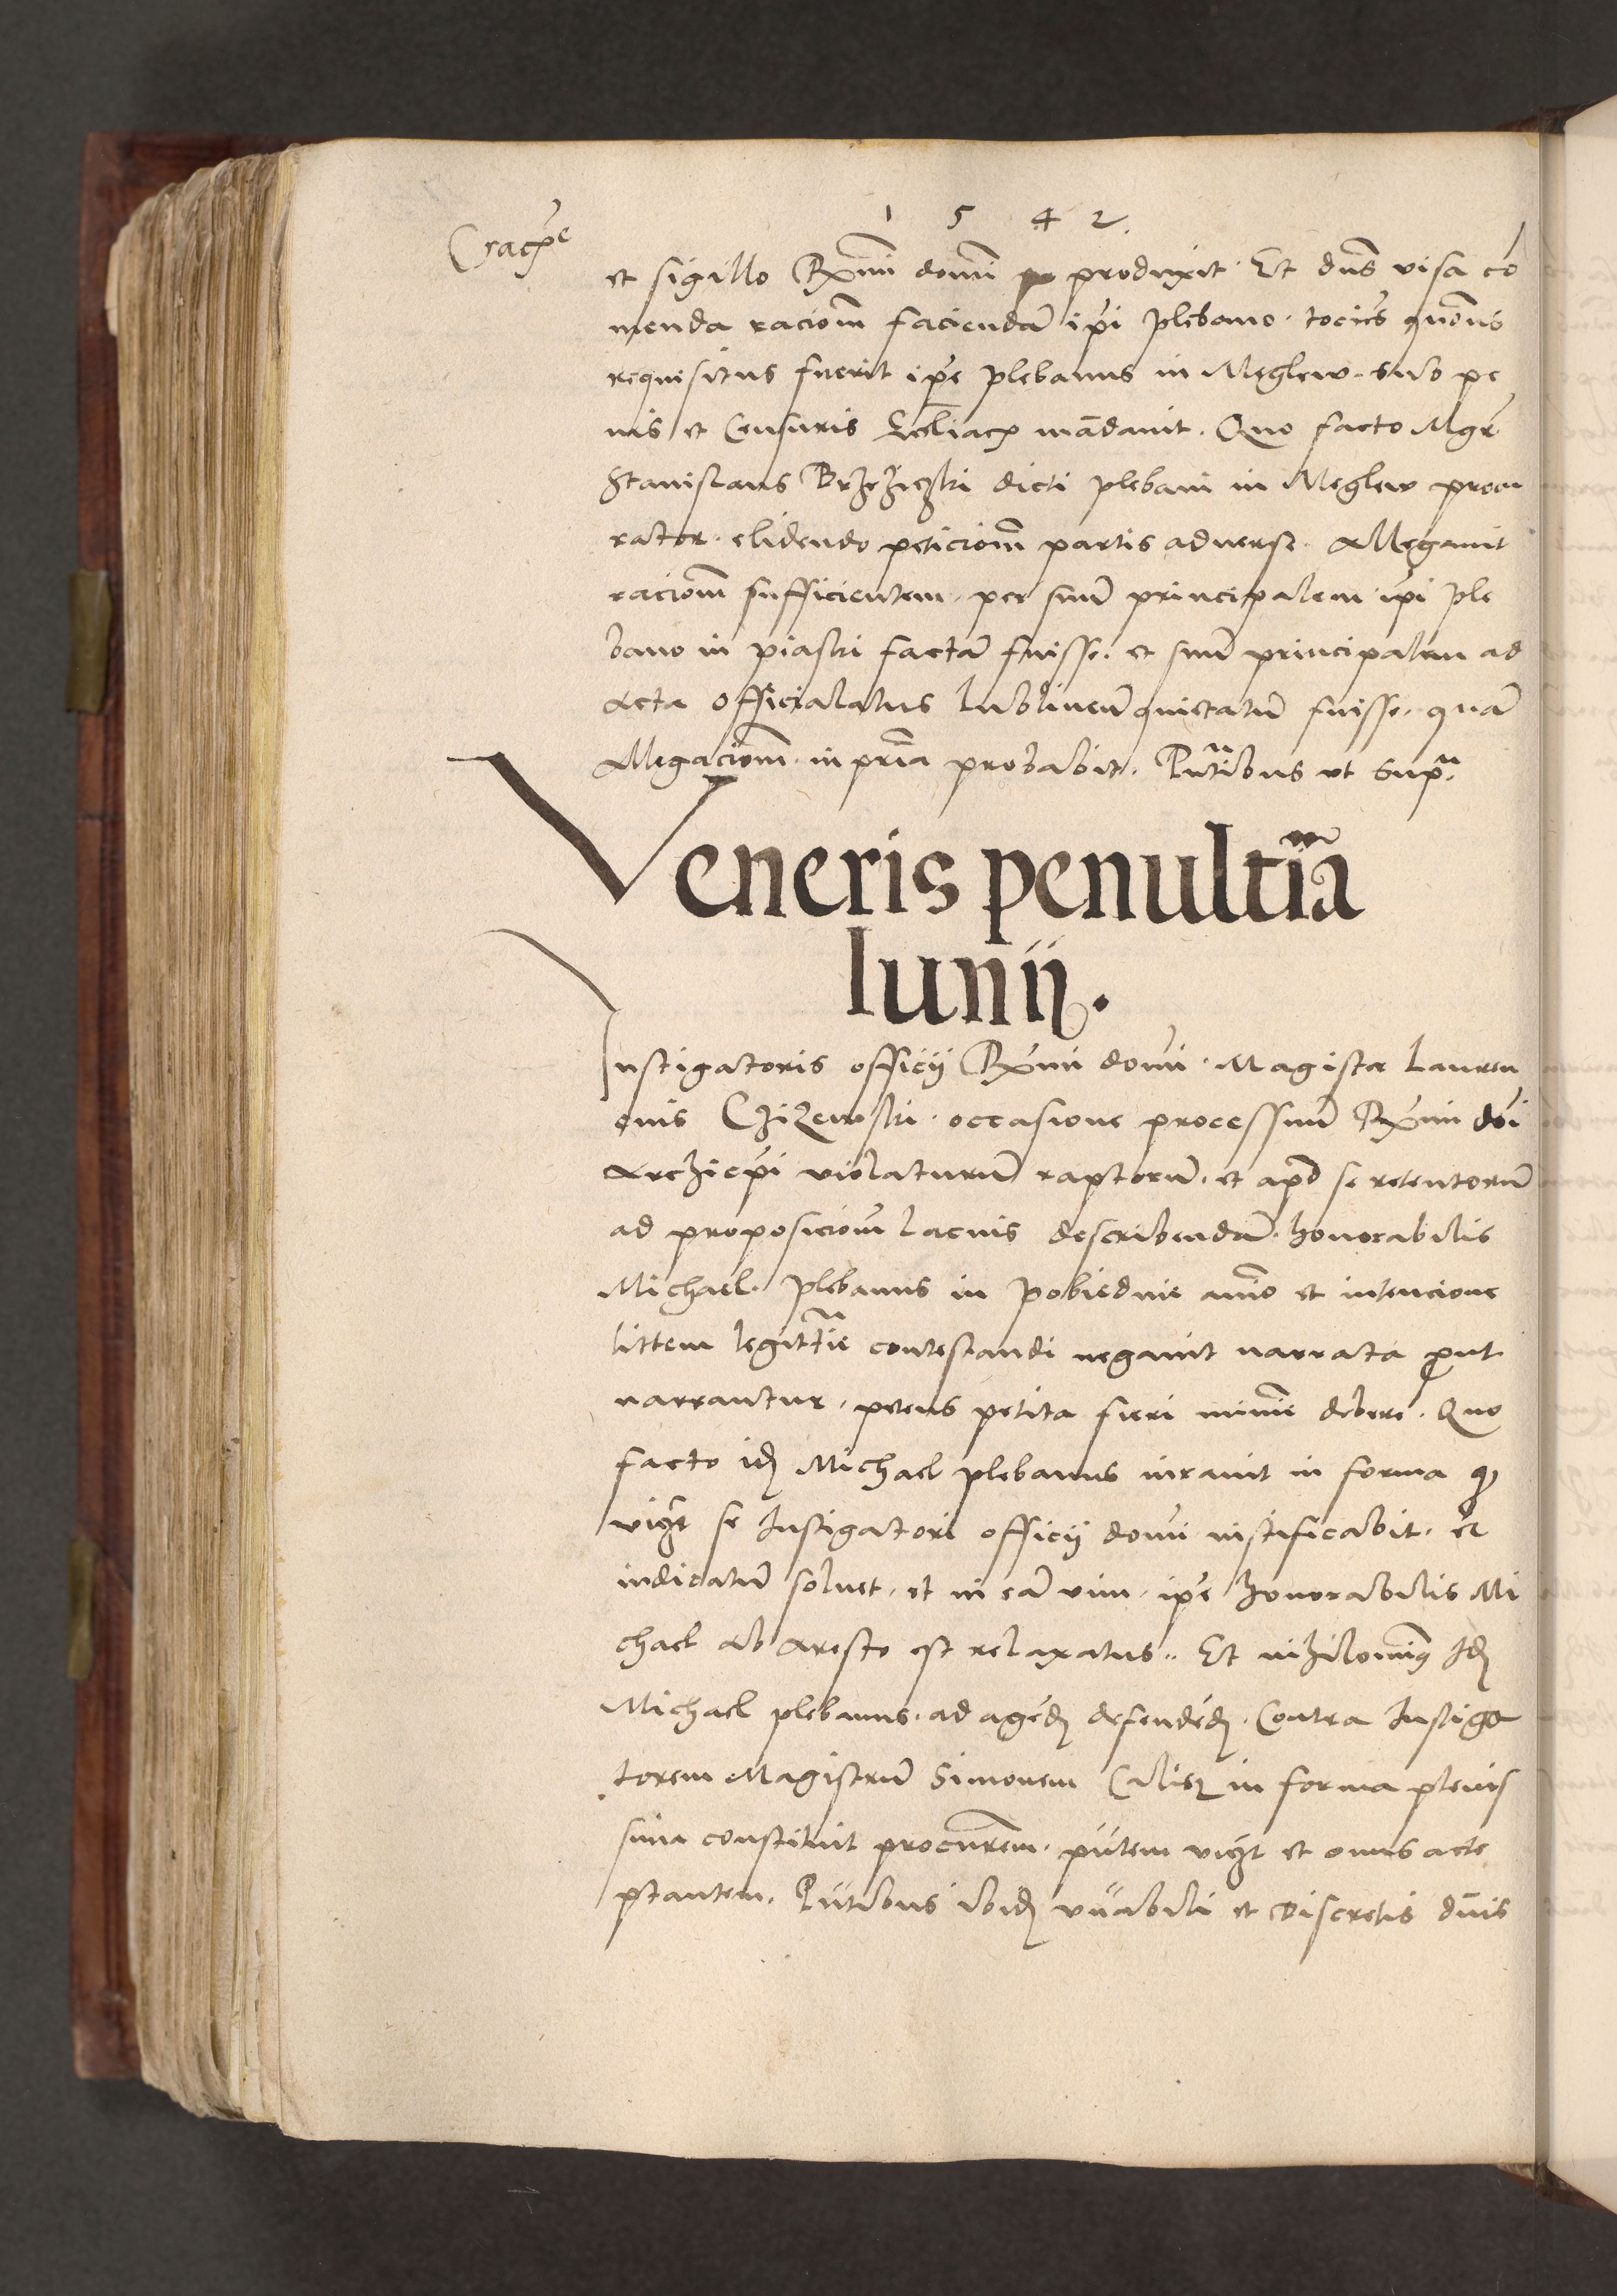 1 5 4 2.
Crac͞xe
et sigillo R͞xmi domi produxit. Et dns visa co
menda raciom faciendã ip̃i plebano. tocies quõns
requisitus fuerit ip̃e plebanus in Meglew. sub pe
nis et Censuris Eccliacx mãdavit. Quo facto Mgr̃
Stanislaus Brzeziczki dicti plebani in Meglew procu
rator. elidendo peticiom partis adverse. Allegavit
raciom sufficientem. per suũ principalem ip̃i ple
bano in piaski factã fuisse. et suũ principalem ad
acta officialatus Lublineñ quietatũ fuisse. quã
Allegaciom. in pria probabit. Pñtibus ut supra.
Veneris penultĩa
Iunij.
Instigatoris officij R͞xmi domi. Magister Lauren
cius Czizewski. occasione processuũ R͞xmi dõi
Archiep̃i violaturũ raptorũ. et apd se retentorũ
ad proposiciom lacius describendã. honorabilis
Michael. plebanus in pobiednie aniõ et intencione
littem legittĩe contestandi negavit narrata prout
narrantur. petens petita fieri minĩe debere. Quo
facto idẽ Michael plebanus iuravit in forma q
vigr̃ se Instigatori officij domi iustificabit. et
iudicatũ solvet. et in eã vim. ip̃e honorabilis Mi
chael ab aresto est relaxatus.. Et nihilomĩq Idẽ
Michael plebanus. ad agẽdũ defendẽdũ. Contra Instiga
torem Magistrũ Simonem Calisz in forma plenis
sima constituit procurem. pñtem vigr̃ et onus acce
ptantem. Pñtibus ibidẽ vñabili et Discretis dñis